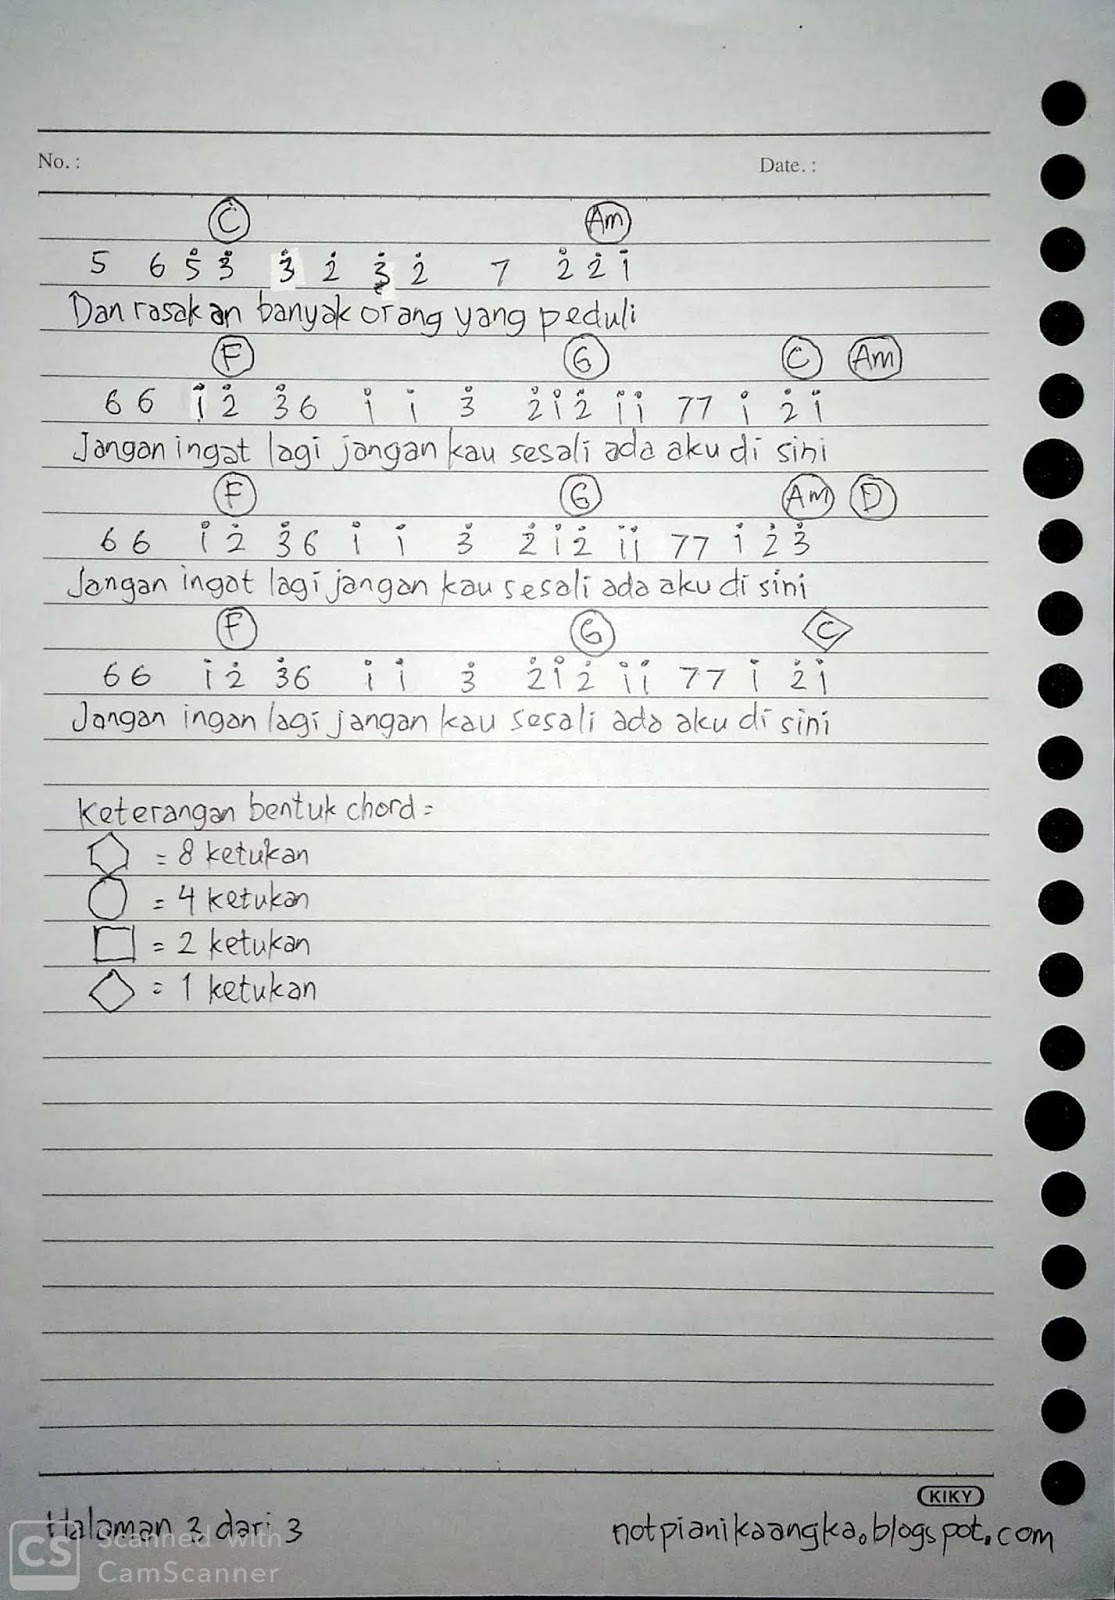 No. :
Date. :
C Am
5 6 5̇ 3̇ 3̇ 2̇ 3̇ 2̇ 7 2̇ 2̇ 1̇
Dan rasakan banyak orang yang peduli
F G C Am
6 6 1̇ 2̇ 3̇ 6 1̇ 1̇ 3̇ 2̇ 1̇ 2̇ 1̇ 1̇ 7 7 1̇ 2̇ 1̇
Jangan ingat lagi jangan kau sesali ada aku di sini
F G Am D
6 6 1̇ 2̇ 3̇ 6 1̇ 1̇ 3̇ 2̇ 1̇ 2̇ 1̇ 1̇ 7 7 1̇ 2̇ 3̇
Jangan ingat lagi jangan kau sesali ada aku di sini
F G C
6 6 1̇ 2̇ 3̇ 6 1̇ 1̇ 3̇ 2̇ 1̇ 2̇ 1̇ 1̇ 7 7 1̇ 2̇ 1̇
Jangan ingan lagi jangan kau sesali ada aku di sini
Keterangan bentuk chord =
= 8 ketukan
= 4 ketukan
= 2 ketukan
= 1 ketukan
KIKY
Halaman 3 dari 3
notpianikaangka.blogspot.com
CS Scanned with
CamScanner